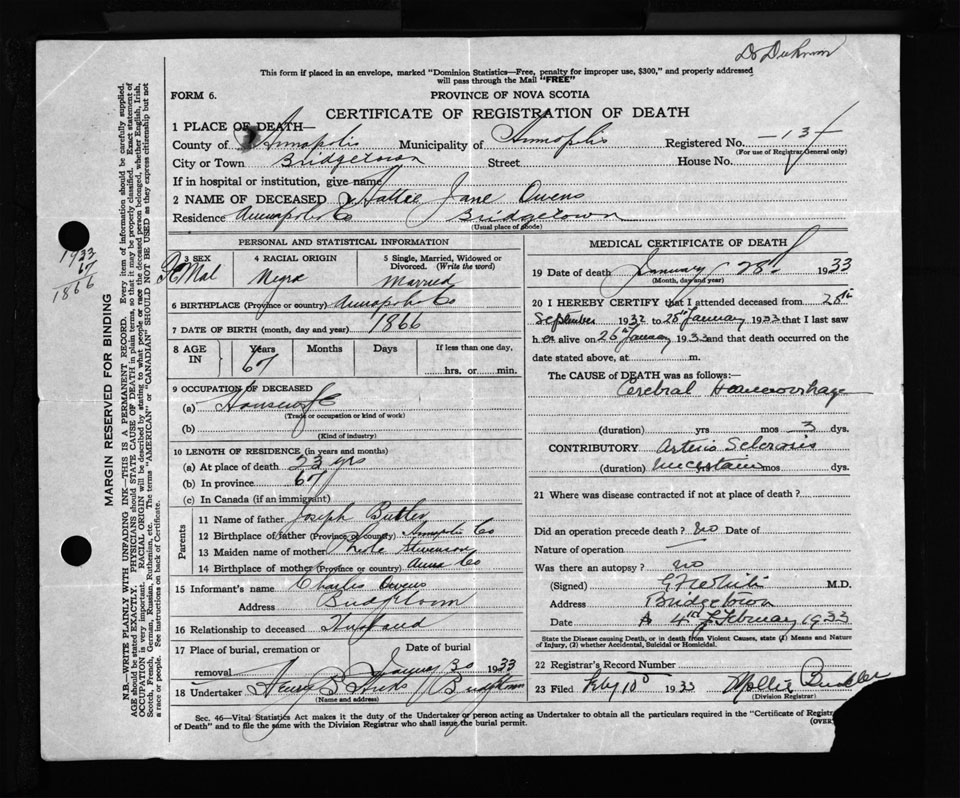 This form if placed in an envelope, marked "Dominion Statistics—Free, penalty for improper use, $300," and properly addressed
will pass through the Mail "FREE"
FORM 6.
PROVINCE OF NOVA SCOTIA
CERTIFICATE OF REGISTRATION OF DEATH
1 PLACE OF DEATH—
County of Annapolis Municipality of Annapolis Registered No. 137
(For use of Registrar General only)
City or Town Bridgetown Street House No.
If in hospital or institution, give name
2 NAME OF DECEASED Hattie Jane Owens
Residence Annapolis Co Bridgetown
(Usual place of abode)
MARGIN RESERVED FOR BINDING
N.B.—WRITE PLAINLY WITH UNFADING INK—THIS IS A PERMANENT RECORD. Every item of information should be carefully supplied.
AGE should be stated EXACTLY. PHYSICIANS should STATE CAUSE OF DEATH in plain terms, so that it may be properly classified. Exact statement of
OCCUPATION is very important. RACIAL ORIGIN will be described by stating to what people or race the deceased person belonged, whether English, Irish,
Scotch, French, German, Russian, Ruthenian, etc. The terms "AMERICAN" or "CANADIAN" SHOULD NOT BE USED as they express citizenship but not
a race or people. See instructions on back of Certificate.
1933
67
1866
PERSONAL AND STATISTICAL INFORMATION
3 SEX 4 RACIAL ORIGIN 5 Single, Married, Widowed or
Divorced. (Write the word)
Negro Married
6 BIRTHPLACE (Province or country) Annapolis Co
7 DATE OF BIRTH (month, day and year) 1866
8 AGE IN Years Months Days If less than one day,
67 hrs. or min.
9 OCCUPATION OF DECEASED
(a) Housewife
(Trade or occupation or kind of work)
(b)
(Kind of industry)
10 LENGTH OF RESIDENCE (in years and months)
(a) At place of death 23 yrs
(b) In province 67
(c) In Canada (if an immigrant)
Parents
11 Name of father Joseph Butler
12 Birthplace of father (Province or country) Annapolis Co
13 Maiden name of mother Stevenson
14 Birthplace of mother (Province or country) Anna Co
15 Informant's name Charles Owens
Address Bridgetown
16 Relationship to deceased Husband
17 Place of burial, cremation or Date of burial
removal January 30 1933
18 Undertaker Henry B Hicks Bridgetown
(Name and address)
MEDICAL CERTIFICATE OF DEATH
19 Date of death January 28th 1933
(Month, day and year)
20 I HEREBY CERTIFY that I attended deceased from 28th
September 1932 to 28th January 1933 that I last saw
her alive on 26th January 1933 and that death occurred on the
date stated above, at m.
The CAUSE OF DEATH was as follows:—
Cerebral Haemorrhage
(duration) yrs mos 3 dys.
CONTRIBUTORY Arterio Sclerosis
(duration) uncertain mos dys.
21 Where was disease contracted if not at place of death?
Did an operation precede death? no Date of
Nature of operation —
Was there an autopsy? no
(Signed) M.D.
Address Bridgetown
Date 4th February 1933
State the Disease causing Death, or in death from Violent Causes, state (1) Means and Nature
of Injury, (2) whether Accidental, Suicidal or Homicidal.
22 Registrar's Record Number
23 Filed Feby 10 1933 Mollie
(Division Registrar)
Sec. 46—Vital Statistics Act makes it the duty of the Undertaker or person acting as Undertaker to obtain all the particulars required in the "Certificate of Regist
of Death" and to file the same with the Division Registrar who shall issue the burial permit.
(OVER